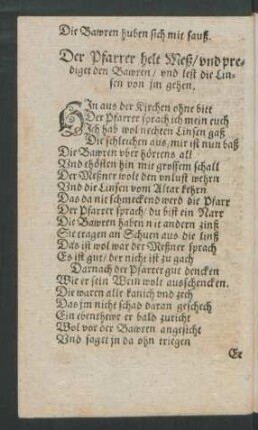 Die Bawren huben sich mit sauß.
Der Pfarrer helt Meß/ vnd pre-
diget den Bawren/ vnd lest die Lin-
sen von jm gehen.
HIn aus der Kirchen ohne bitt
Der Pfarrer sprach ich mein euch
Ich hab wol nechten Linsen gaß
Die schleichen aus, mir ist nun baß
Die Bawren vber hörtens all
Vnd thösten hin mit grossem schall
Der Meßner wolt den vnlust wehrn
Vnd die Linsen vom Altar kehrn
Das da nit schmeckend werd die Pfarr
Der Pfarrer sprach/ du bist ein Narr
Die Bawren haben nit andern zinß
Sie tragen an Schuen aus die linß
Das ist wol war der Meßner sprach
Es ist gut/ der nicht ist zu gach
Darnach der Pfarrer gut dencken
Wie er sein Wein wolt ausschencken.
Die waren alle kanich vnd zech
Das jm nicht schad daran geschech
Ein eventhewr er bald zuricht
Wol vor der Bawren angesicht
Vnd sagt in da ohn triegen
Er